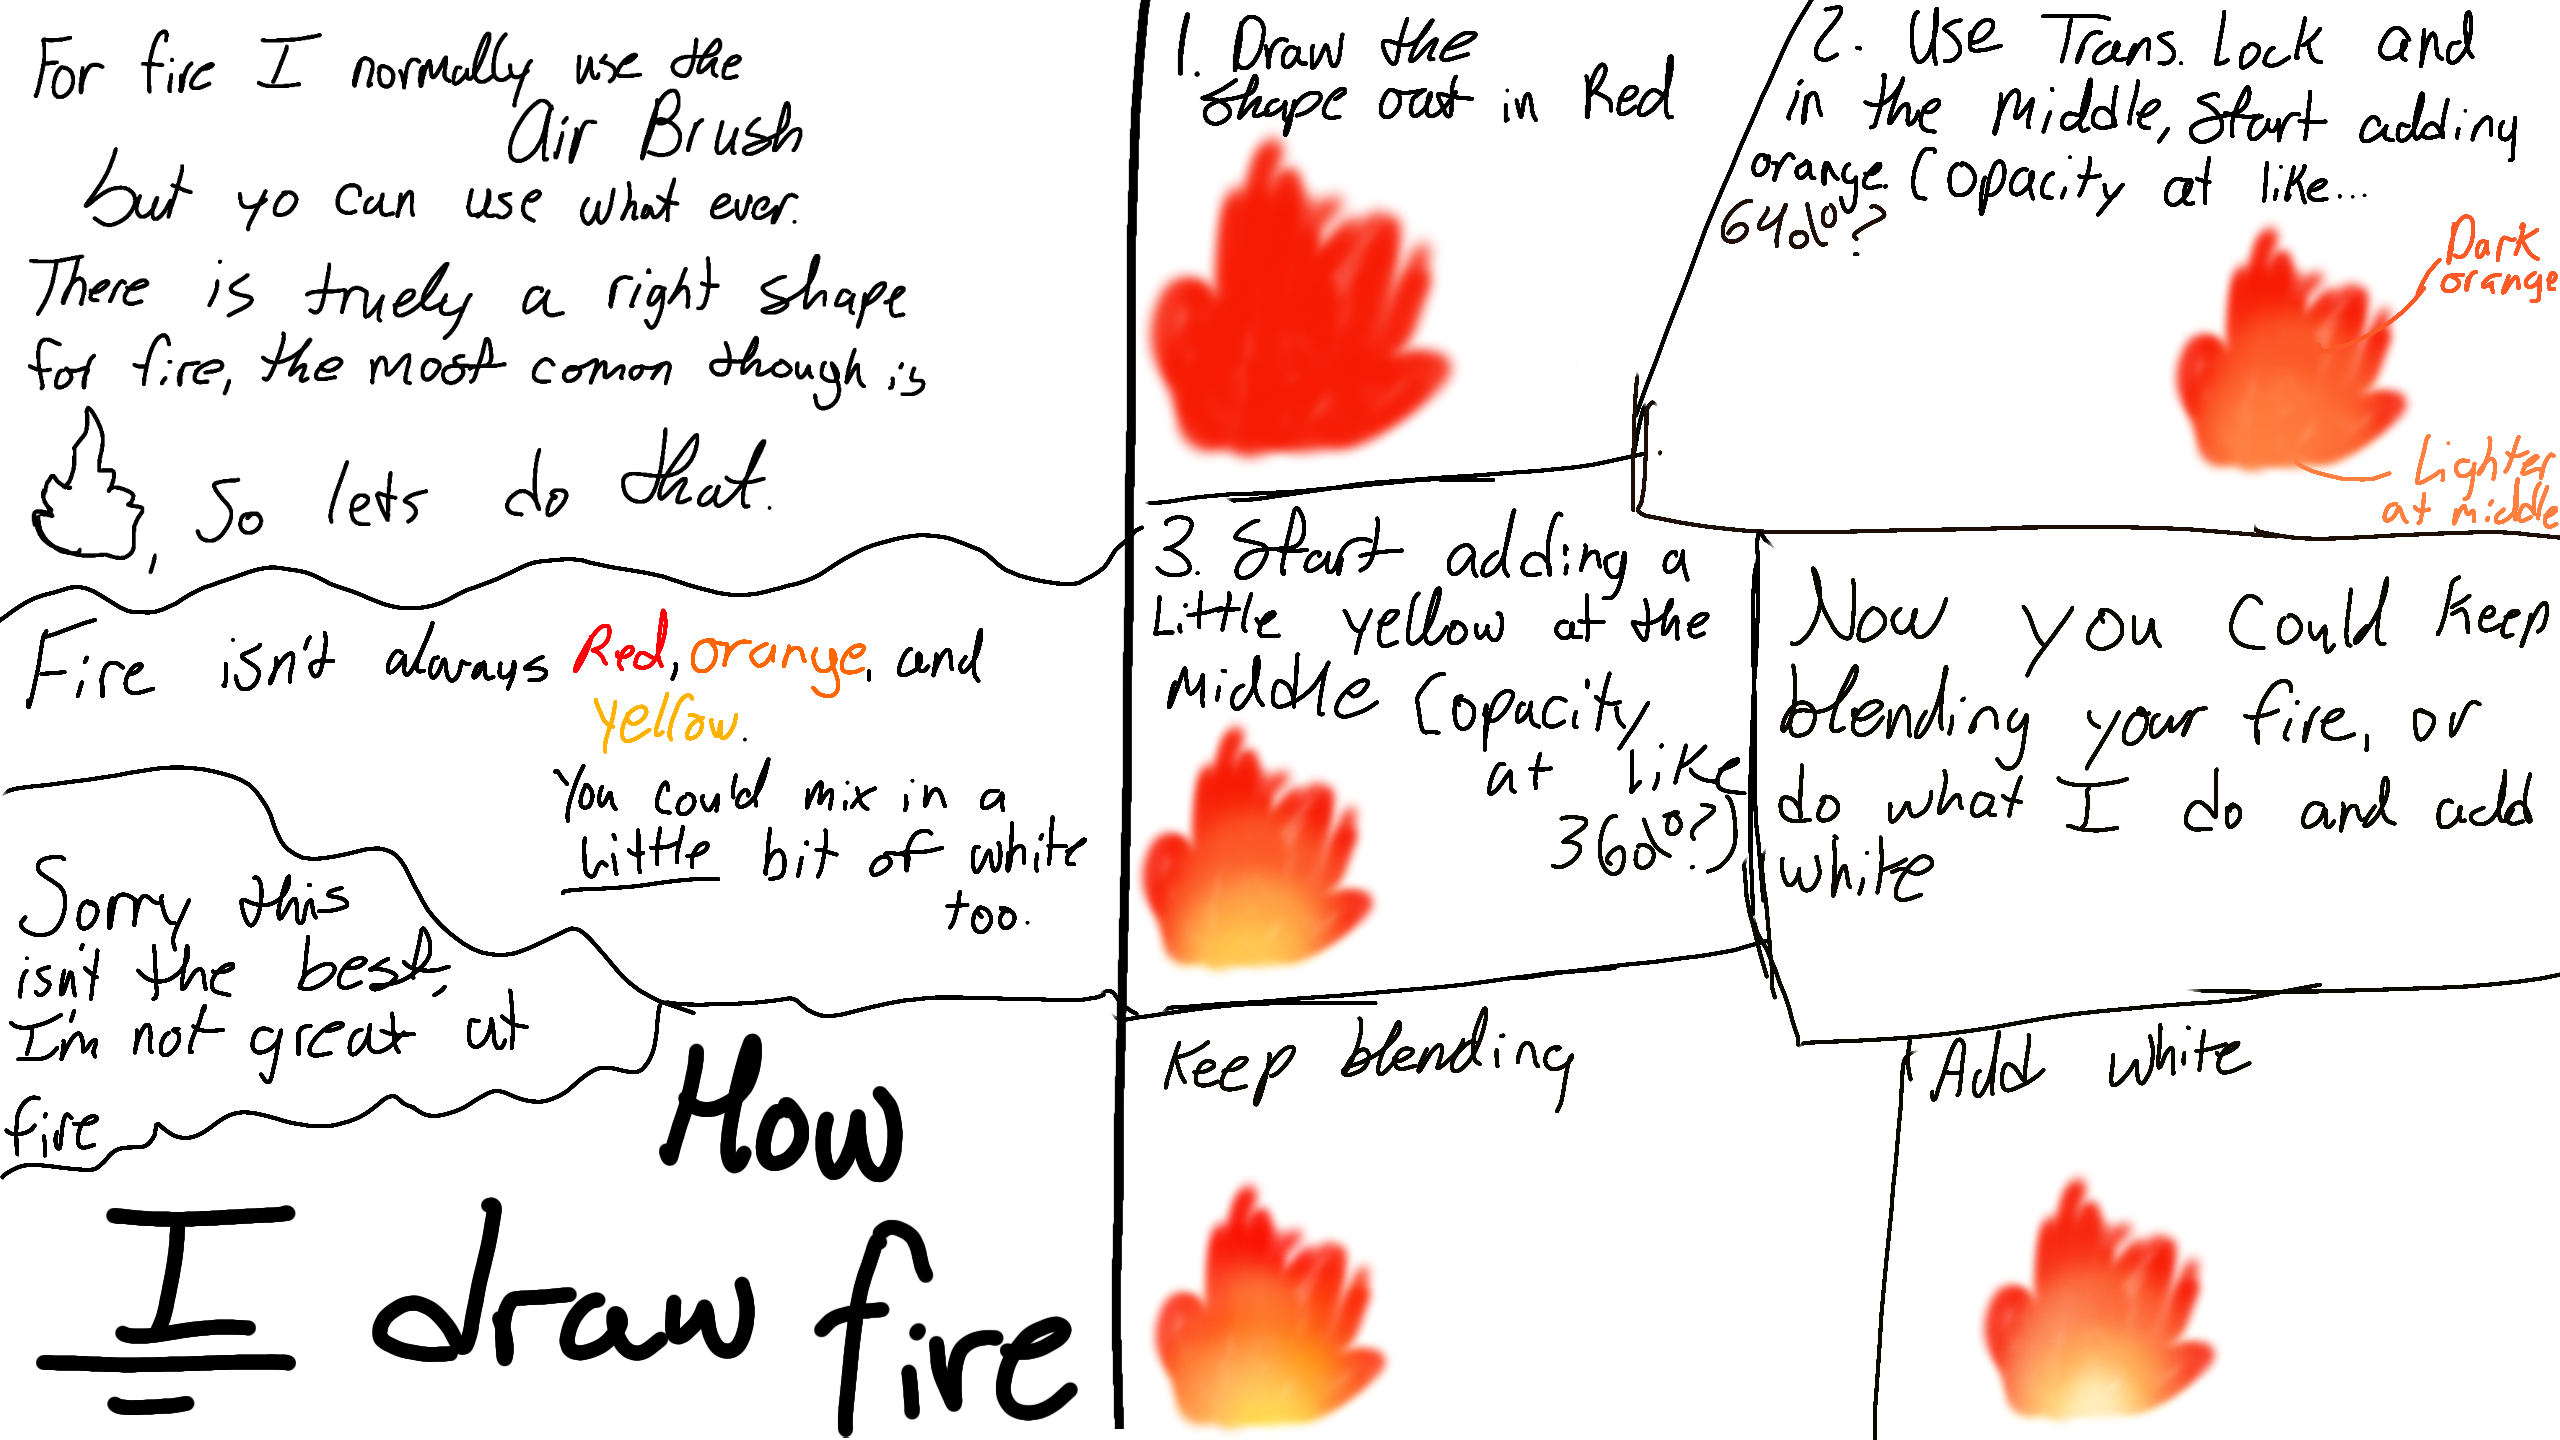 For fire I normally use the
Air Brush
but yo can use what ever.
There is truely a right shape
for fire, the most comon though is
, So lets do that.
Fire isn't always Red, orange, and
yellow.
You could mix in a
little bit of white
too.
Sorry this
isn't the best,
I'm not great at
fire
How
I draw fire
1. Draw the
shape out in Red
2. Use Trans. Lock and
in the Middle, start adding
orange. (opacity at like...
64%?
Dark
orange
Lighter
at middle
3. Start adding a
Little yellow at the
Middle (opacity
at like
36%?)
Now you could keep
blending your fire, or
do what I do and add
white
Keep blending
Add white